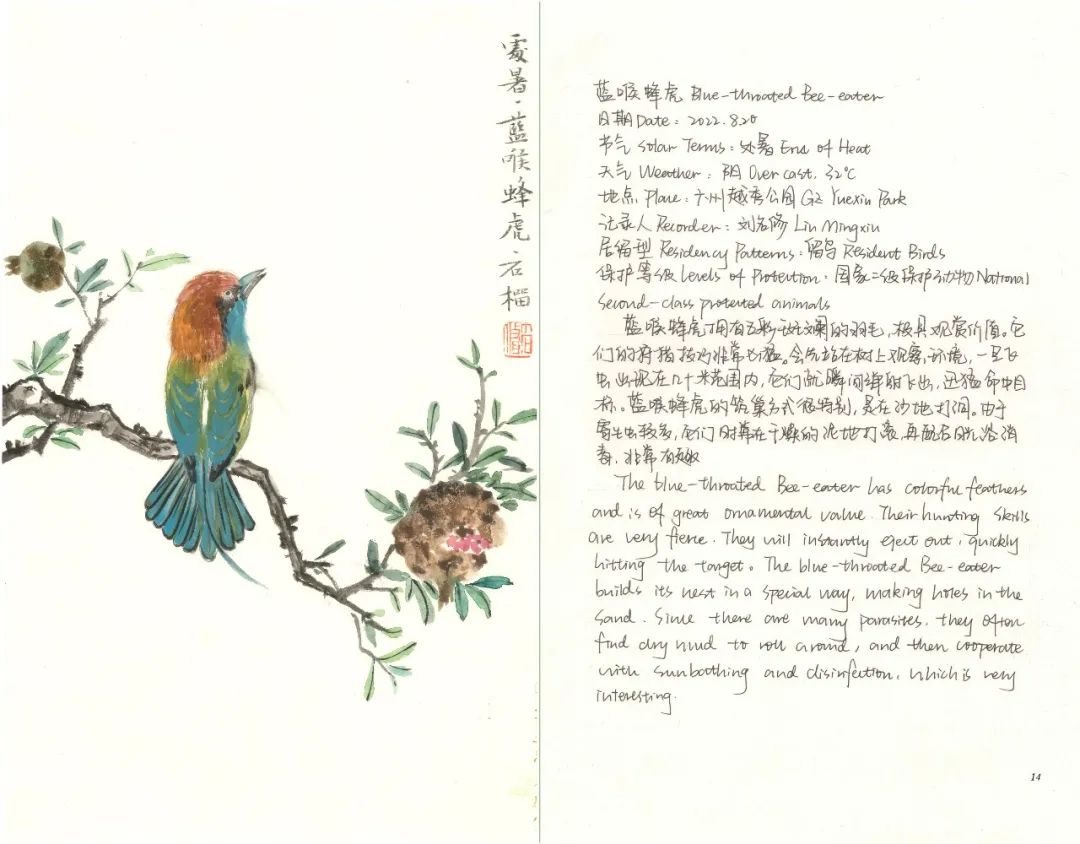 處暑·藍喉蜂虎·石榴
蓝喉蜂虎 Blue-throated Bee-eater
日期 Date: 2022.8.20
节气 Solar Terms: 处暑 End of Heat
天气 Weather: 阴 Overcast, 32℃
地点 Plane: 广州越秀公园 GZ Yuexiu Park
记录人 Recorder: 刘名修 Liu Mingxiu
居留型 Residency Patterns: 留鸟 Resident Birds
保护等级 Levels of Protection: 国家二级保护动物 National
second-class protected animals
蓝喉蜂虎拥有五彩斑斓的羽毛,极具观赏价值。它
们的狩猎技巧非常勇猛。会先站在树上观察环境,一旦飞
虫出现在几十米范围内,它们就瞬间弹射飞出,迅猛命中目
标。蓝喉蜂虎的筑巢方式很特别,是在沙地打洞。由于
寄生虫较多,它们时常在干燥的泥地打滚,再配合日光浴消
毒,非常有趣
The blue-throated Bee-eater has colorful feathers
and is of great ornamental value. Their hunting skills
are very fierce. They will instantly eject out, quickly
hitting the target. The blue-throated Bee-eater
builds its nest in a special way, making holes in the
sand. Since there are many parasites, they often
find dry mud to roll around, and then cooperate
with sunbathing and disinfection, which is very
interesting.
14